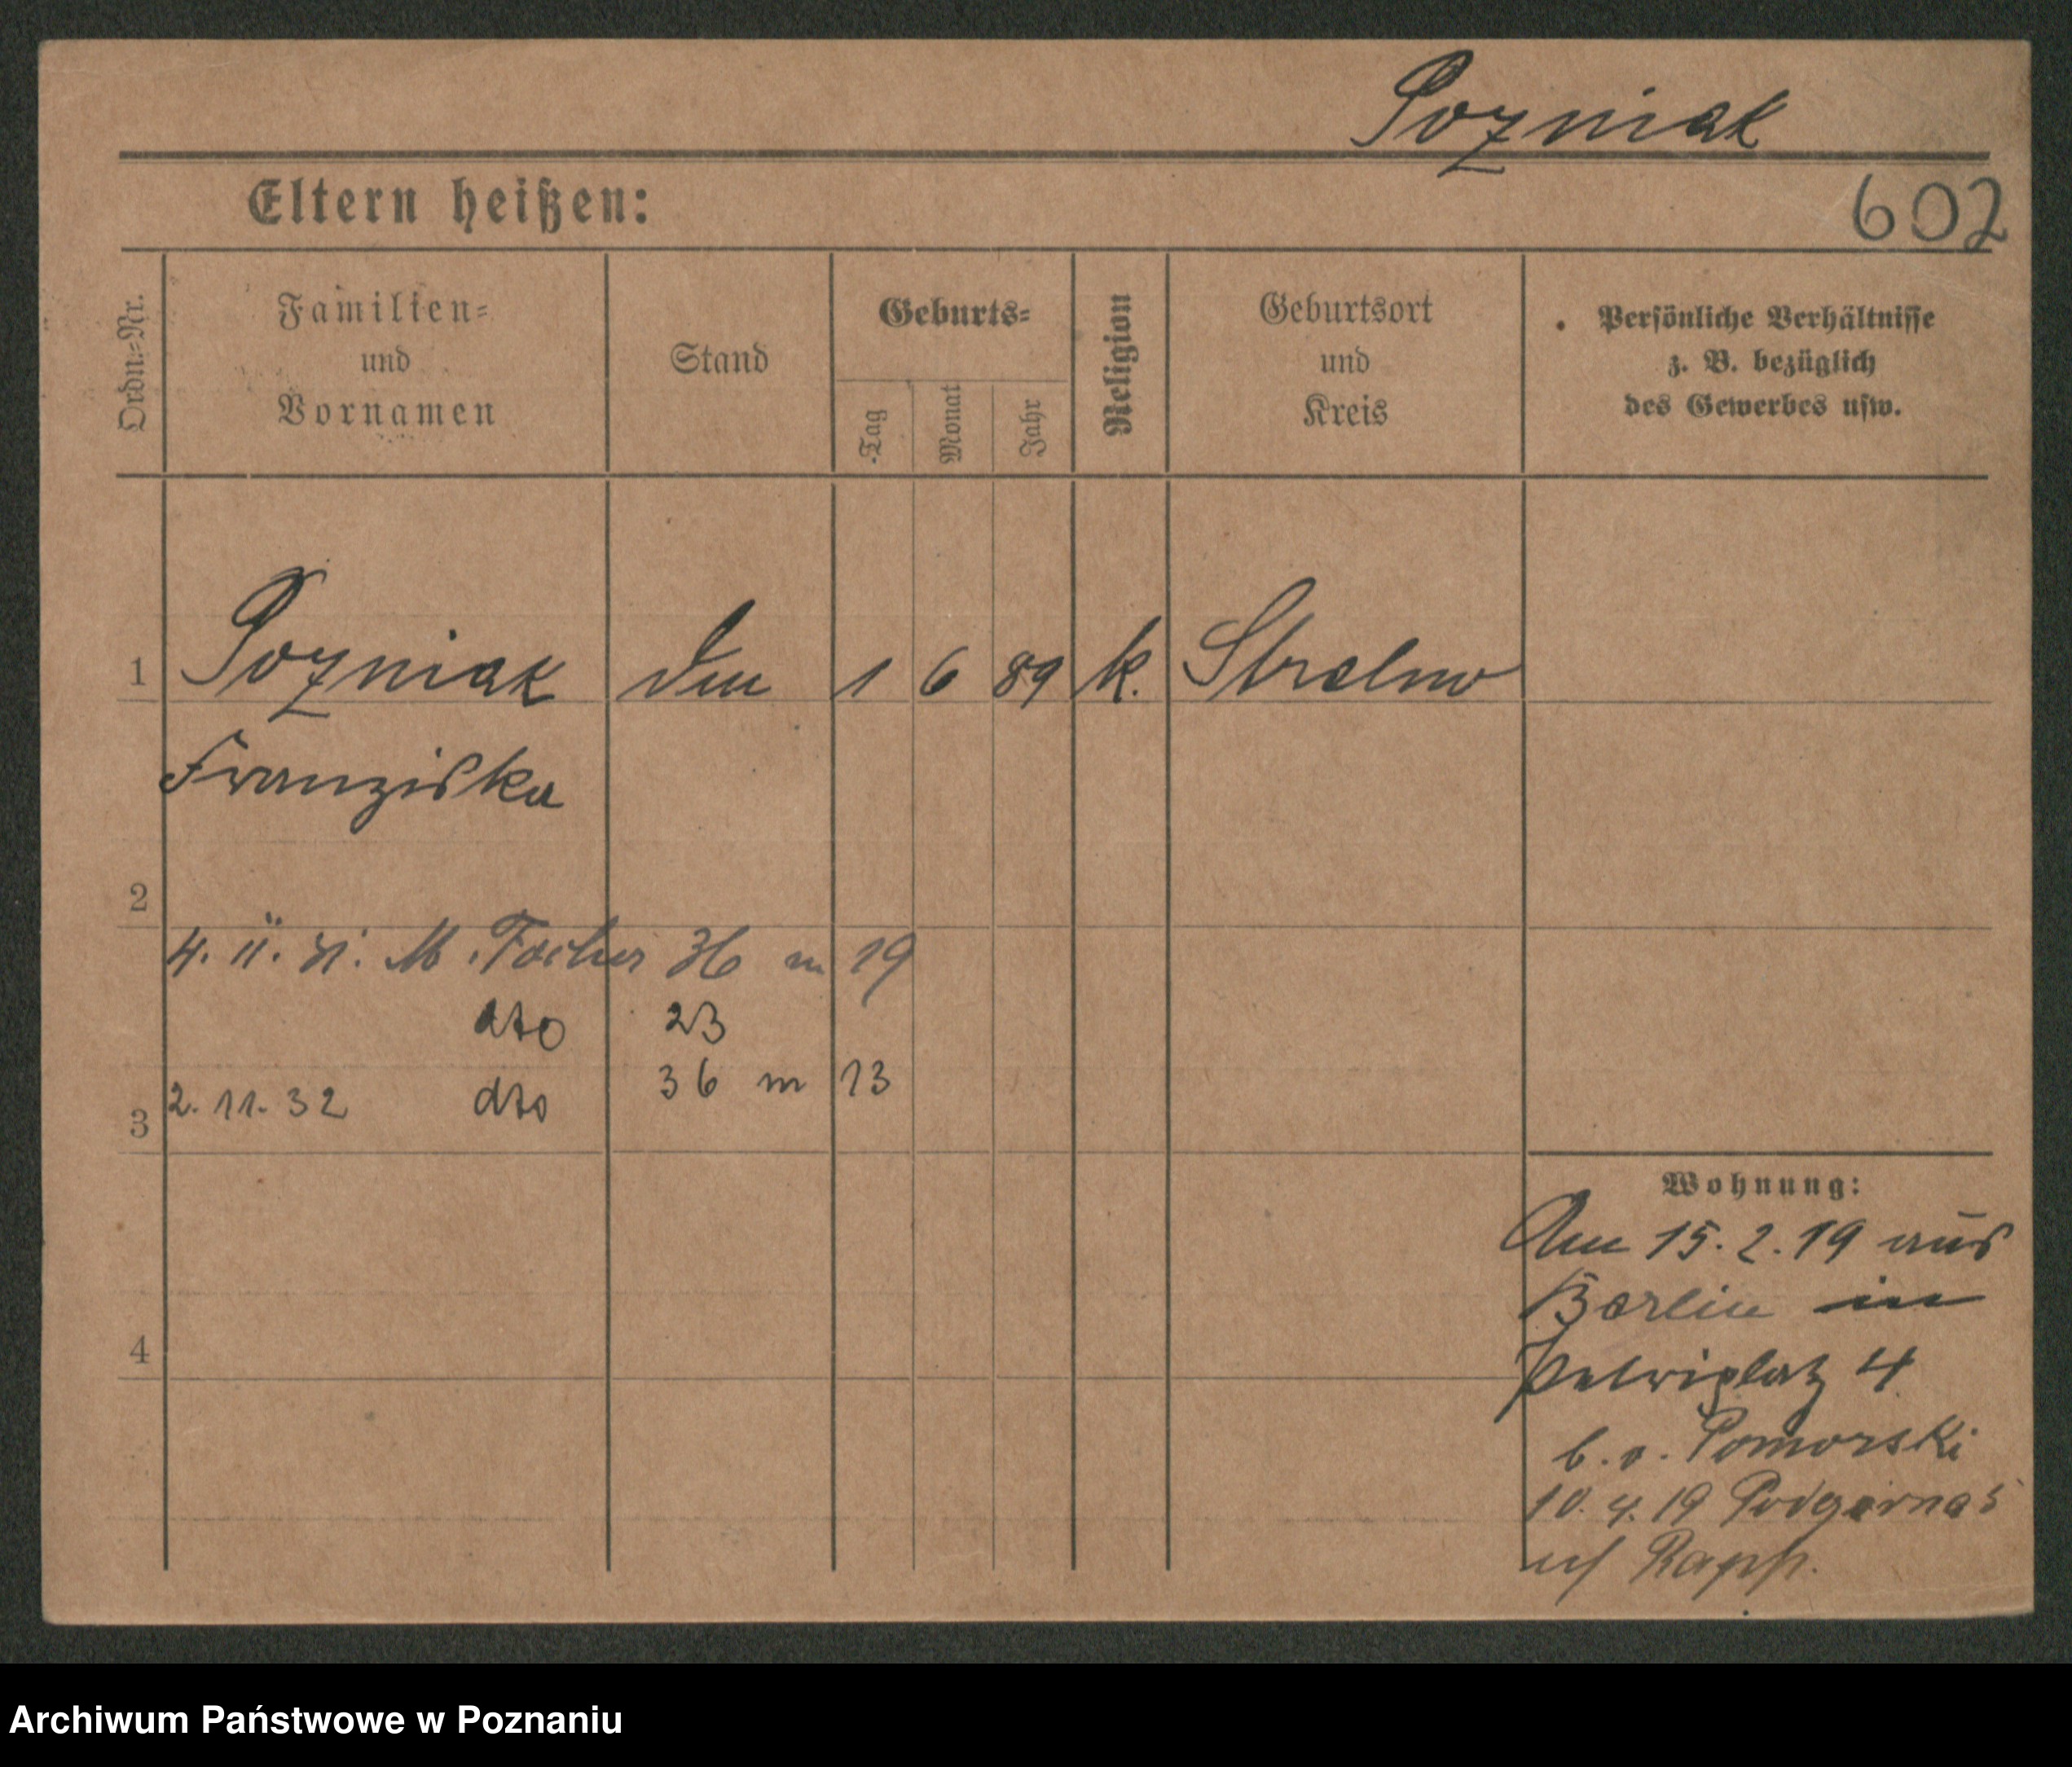 Pozniak
Eltern heißen:
602
Ordn.-Nr.
Familien-
und
Vornamen
Stand
Geburts-
Tag
Monat
Jahr
Religion
Geburtsort
und
Kreis
Persönliche Verhältnisse
z. B. bezüglich
des Gewerbes usw.
1 Pozniak 1 6 89 k. Strelno
Franziska
2
4. 11. 31. M. Focha 36 m 19
dto 23
36 m 13
3 2. 11. 32 dto
Wohnung:
Am 15. 2. 19 aus
Berlin in
Petriplatz 4
b. v. Pomorski
4
10. 4. 19 Podgórna 5
Rapp.
Archiwum Państwowe w Poznaniu